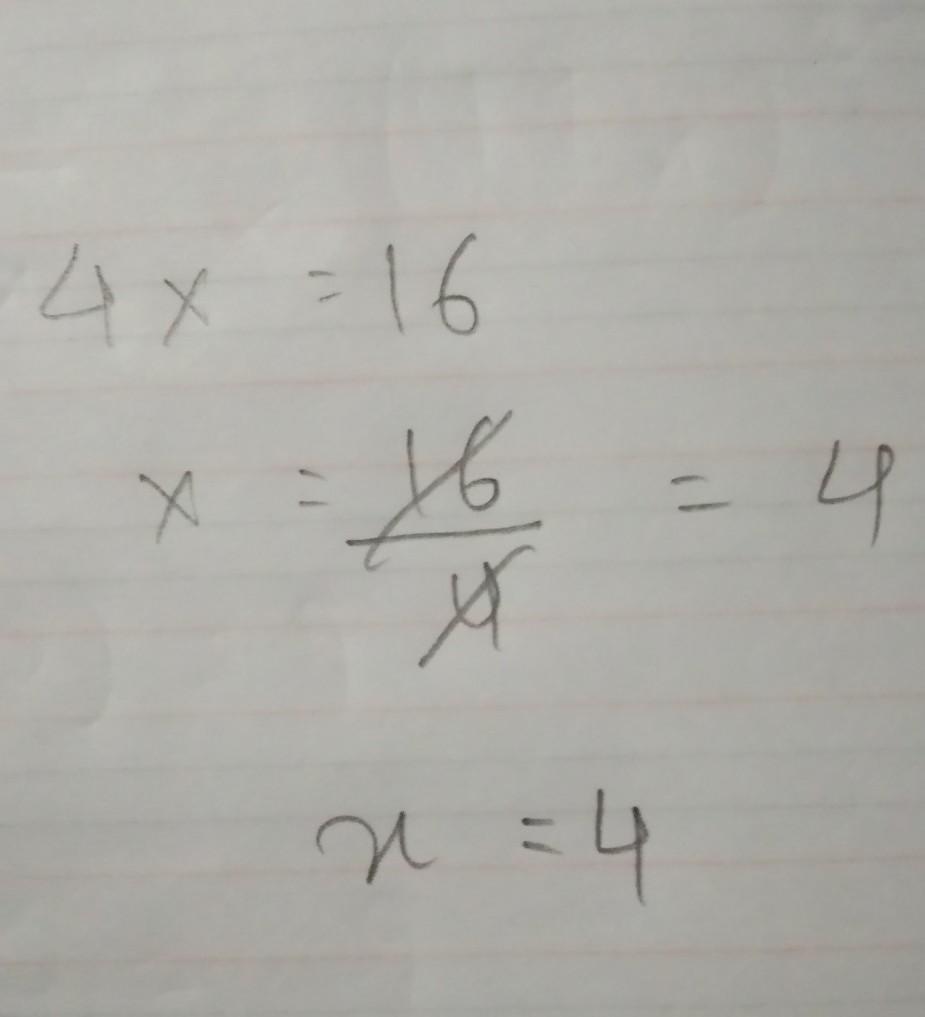 4x = 16
x = 16/4 = 4
x = 4